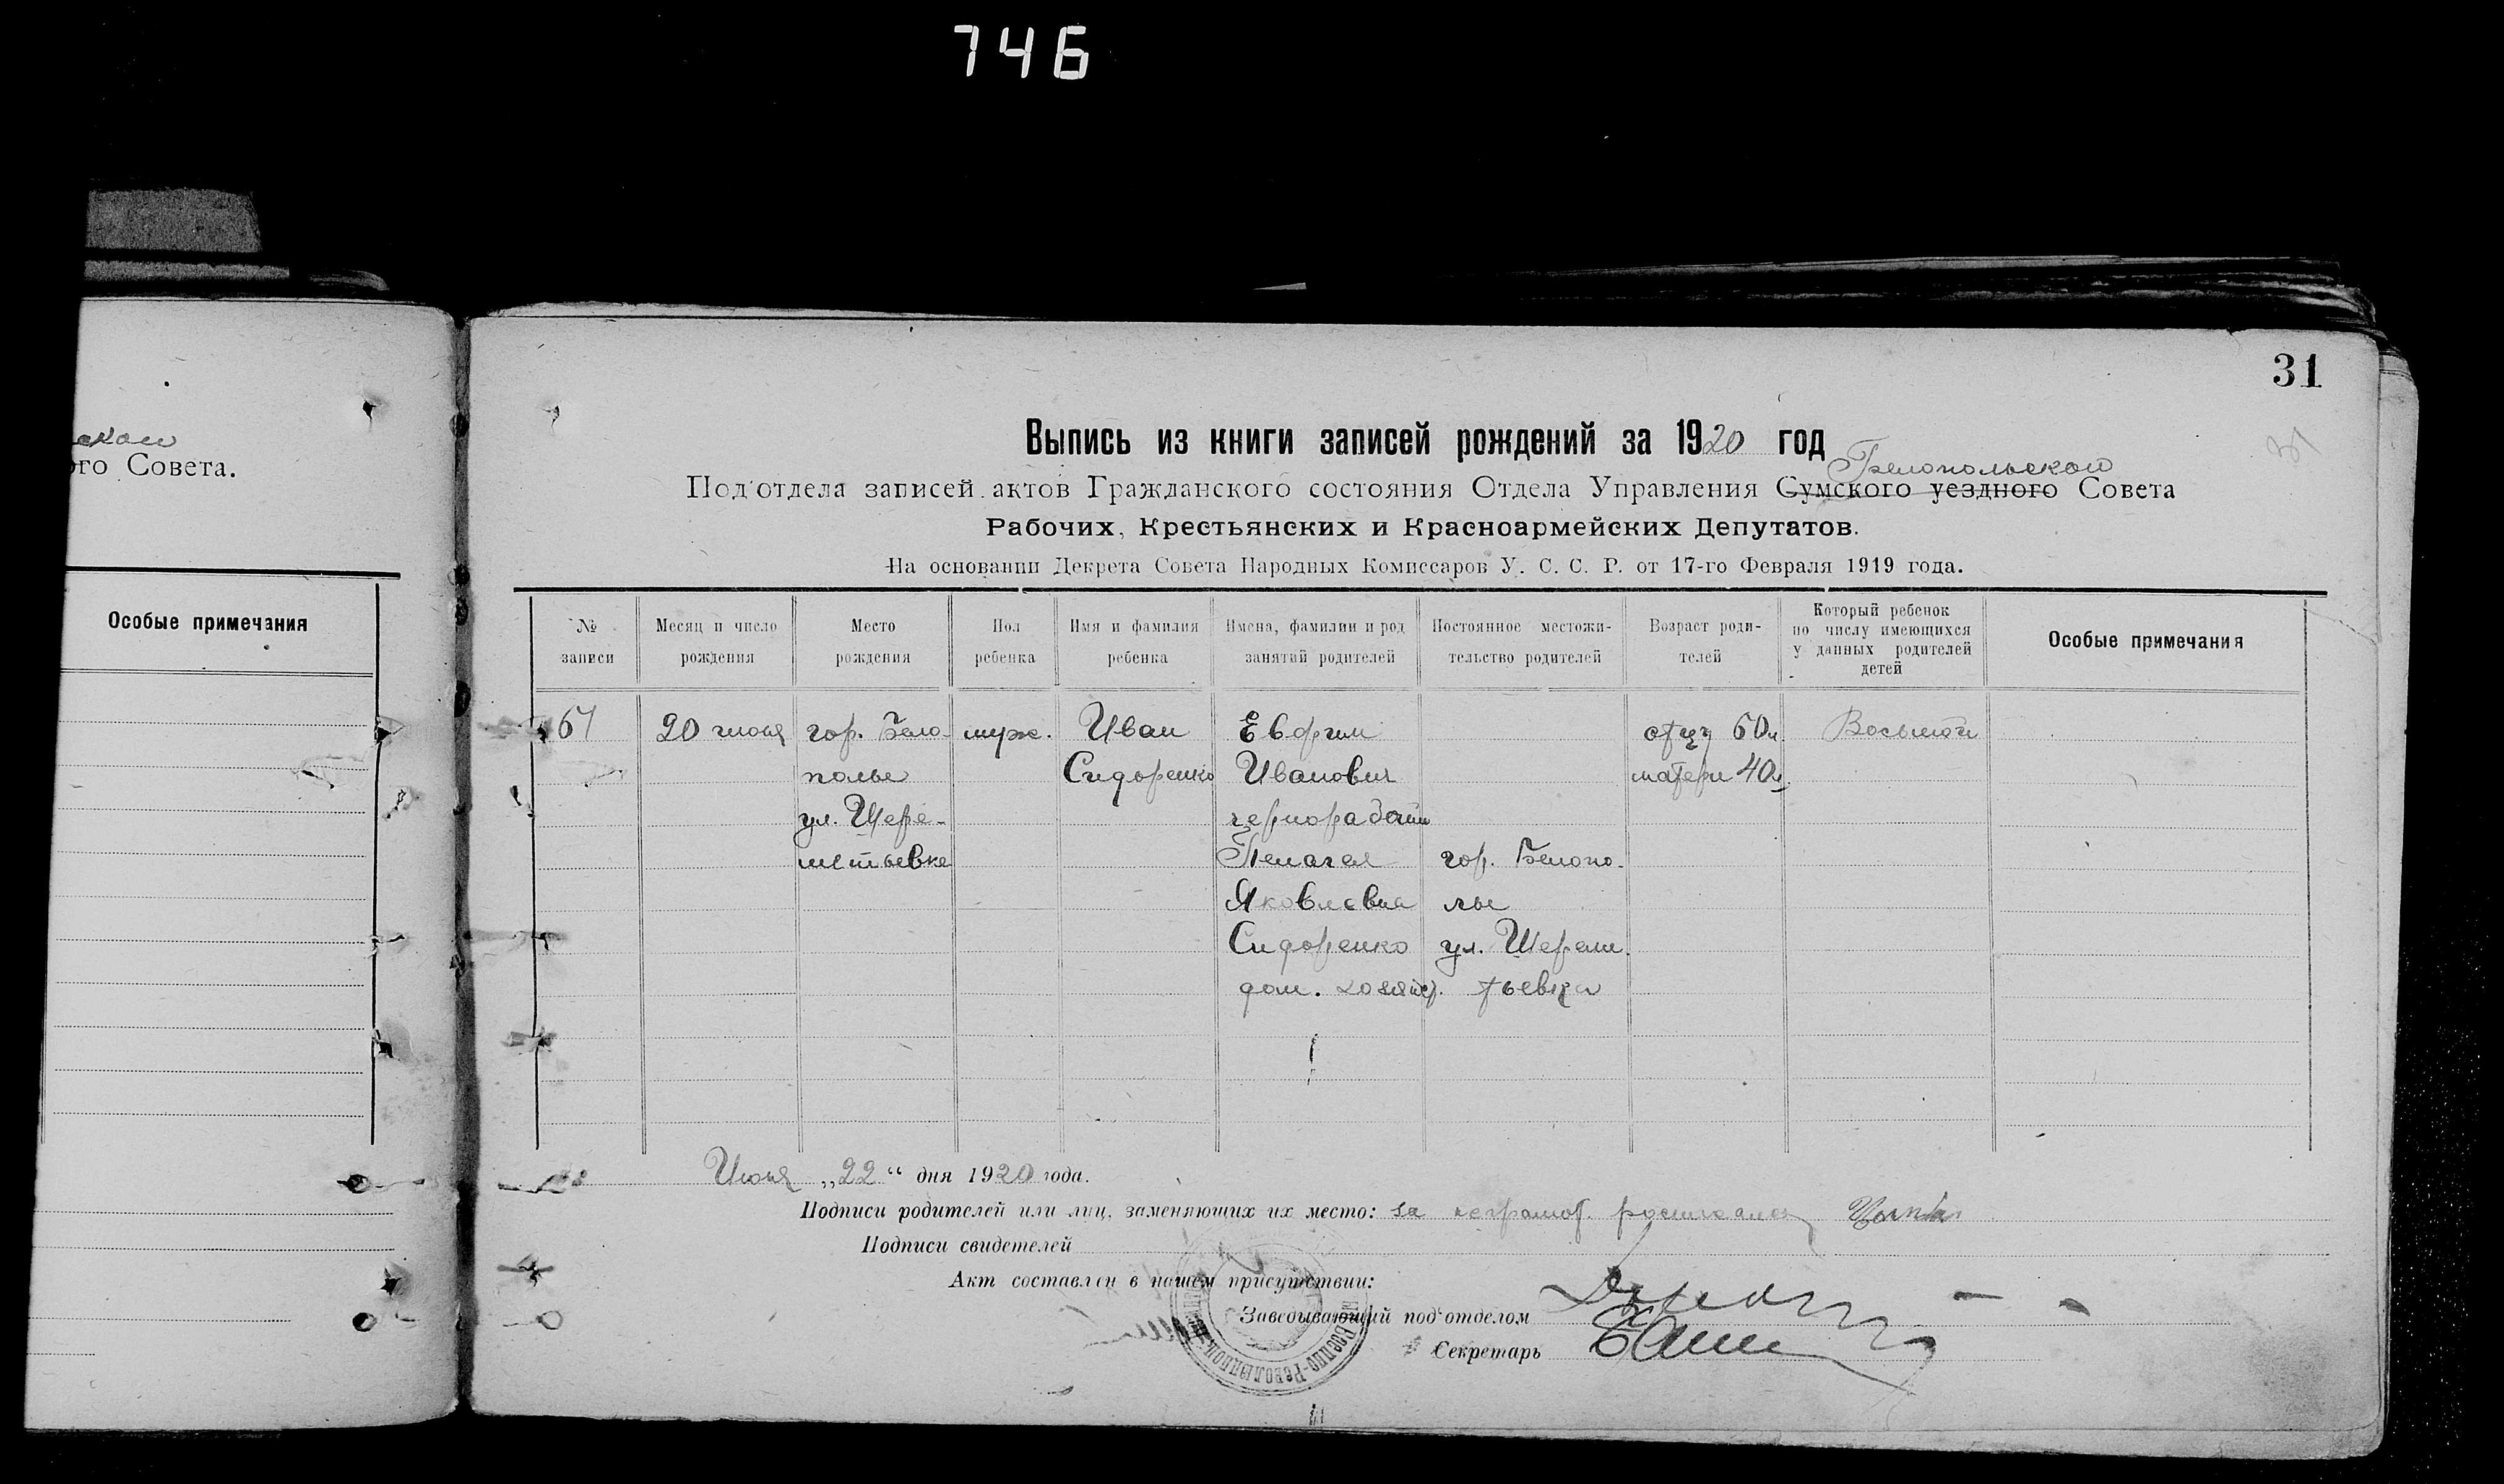 746
31
31
ского Совета.
Особые примечания
Выпись из книги записей рождений за 1920 год
Белопольской
Под'отдела записей актов Гражданского состояния Отдела Управления Сумского уездного Совета
Рабочих, Крестьянских и Красноармейских Депутатов.
На основании Декрета Совета Народных Комиссаров У. С. С. Р. от 17-го Февраля 1919 года.
№ записи
Месяц и число рождения
Место рождения
Пол ребенка
Имя и фамилия ребенка
Имена, фамилии и род занятий родителей
Постоянное местожительство родителей
Возраст родителей
Который ребенок по числу имеющихся у данных родителей детей
Особые примечания
20 июня гор. Бело- муж. Иван Евфим отцу
полье Сидоренко Иванович матери 40л.
ул. Шере- чернорабочий
метьевке Пелагея гор. Белопо-
Яковлевна лье
Сидоренко ул. Шереме-
дом. хозяйст. тьевка
Июня „22“ дня 1920 года.
Подписи родителей или лиц, заменяющих их место: за неграмот. росписался
Подписи свидетелей
Акт составлен в нашем присутствии:
Заведывающий под'отделом
Секретарь
Военно-Революцион